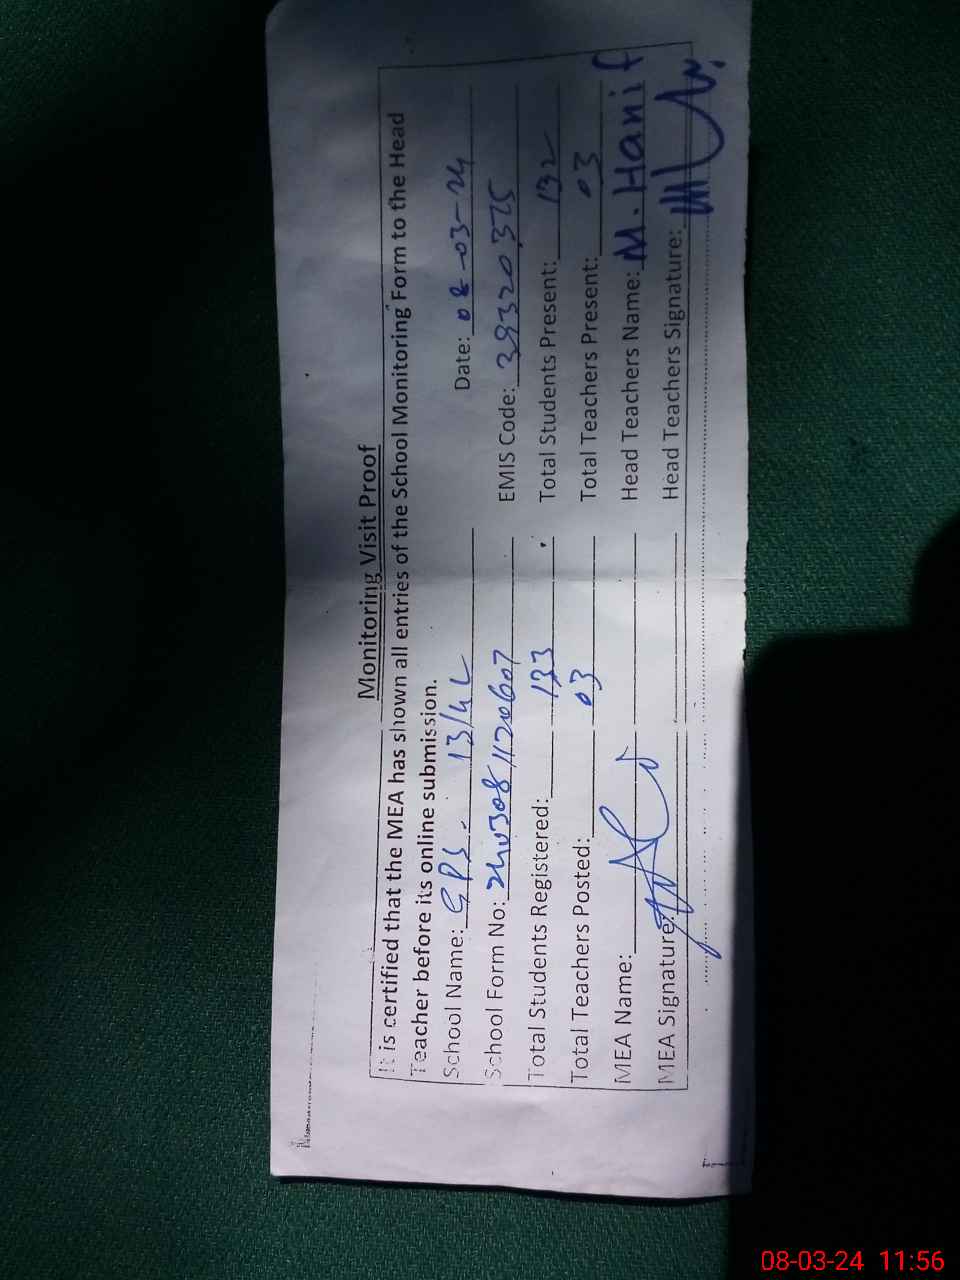 Monitoring Visit Proof
It is certified that the MEA has shown all entries of the School Monitoring Form to the Head
Teacher before its online submission.
School Name: GPS. 13/4L Date: 08-03-24
School Form No: 2403081120607 EMIS Code: 39320375
Total Students Registered: 133 Total Students Present: 132
Total Teachers Posted: 03 Total Teachers Present: 03
MEA Name: Head Teachers Name: M. Hanif
MEA Signature: Head Teachers Signature:
08-03-24 11:56